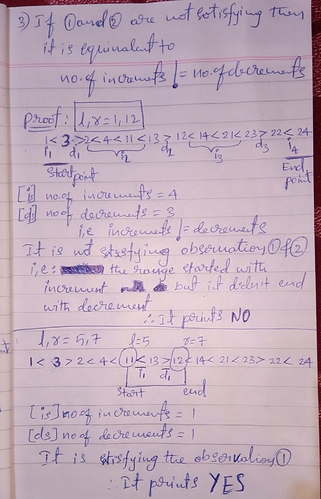 3) If ① and ② are not satisfying then
it is equivalent to
no. of increments != no. of decrements
Proof: l,r = 1,12
1 < 3 > 2 < 4 < 11 < 13 > 12 < 14 < 21 < 23 > 22 < 24
i1 d1 i2 d2 i3 d3 i4
Start point End point
[i] no of increments = 4
[d] no of decrements = 3
i.e increments != decrements
It is not stasfying observation ① & ②
i.e: the range started with
increment but it didn't end
with decrement
∴ It prints NO
l,r = 5,7 l=5 r=7
1 < 3 > 2 < 4 < 11 < 13 > 12 < 14 < 21 < 23 > 22 < 24
i1 d1
start end
[is] no of increments = 1
[ds] no of decrements = 1
It is stasfying the observation ①
∴ It prints YES